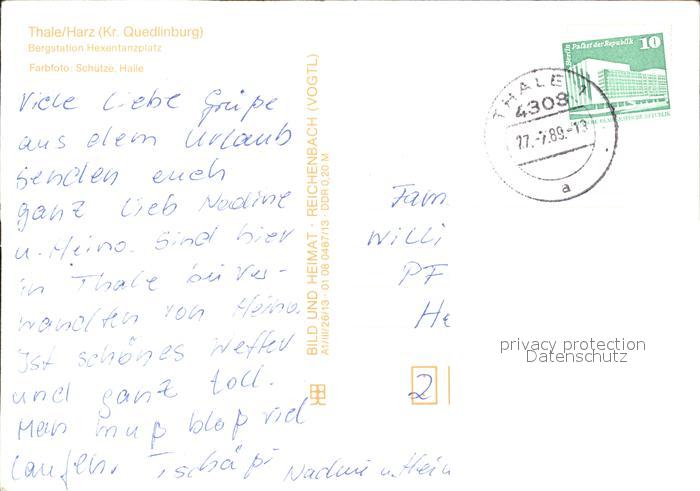 Thale/Harz (Kr. Quedlinburg)
Bergstation Hexentanzplatz
Farbfoto: Schütze, Halle
Viele liebe Grüße
aus dem Urlaub
senden euch
ganz lieb Nadine
u. Heino. Sind hier
in Thale bei Ver-
wandten von Heino.
Ist schönes Wetter
und ganz toll.
Man muß bloß viel
laufen. Tschüß
Nadine u. Hein
BILD UND HEIMAT · REICHENBACH (VOGTL)
A1/III/26/13 · 01 08 0487/13 · DDR 0,20 M
Berlin Palast der Republik 10
THALE 1
4308
27.-7.89.-13
a
Fam
Willi
PF
He
2
privacy protection
Datenschutz